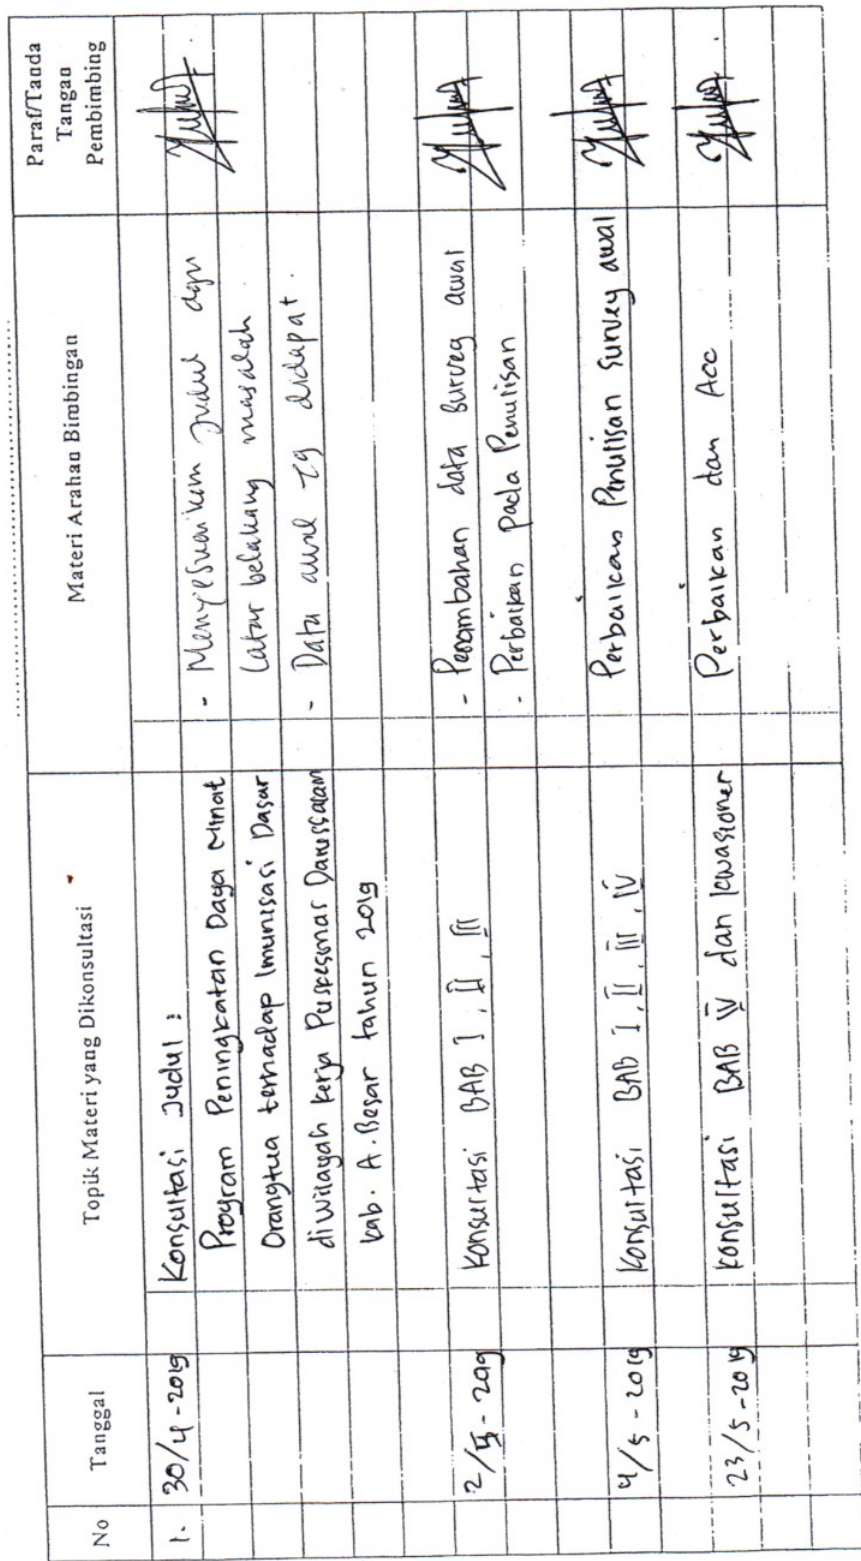 No Tanggal Topik Materi yang Dikonsultasi Materi Arahan Bimbingan Paraf/Tanda Tangan Pembimbing
1. 30/4-2019 Konsultasi Judul :
Program Peningkatan Daya Minat - Menyesuaikan judul dgn
Orangtua terhadap Imunisasi Dasar latar belakang masalah.
diwilayah kerja Puskesmas Darussalam - Data awal yg didapat.
kab. A. Besar tahun 2019
2/5-2019 Konsultasi BAB I, II, III - Penambahan data survey awal
- Perbaikan pada Penulisan
4/5-2019 Konsultasi BAB I, II, III, IV Perbaikan Penulisan Survey awal
23/5-2019 Konsultasi BAB IV dan kuasioner Perbaikan dan Acc